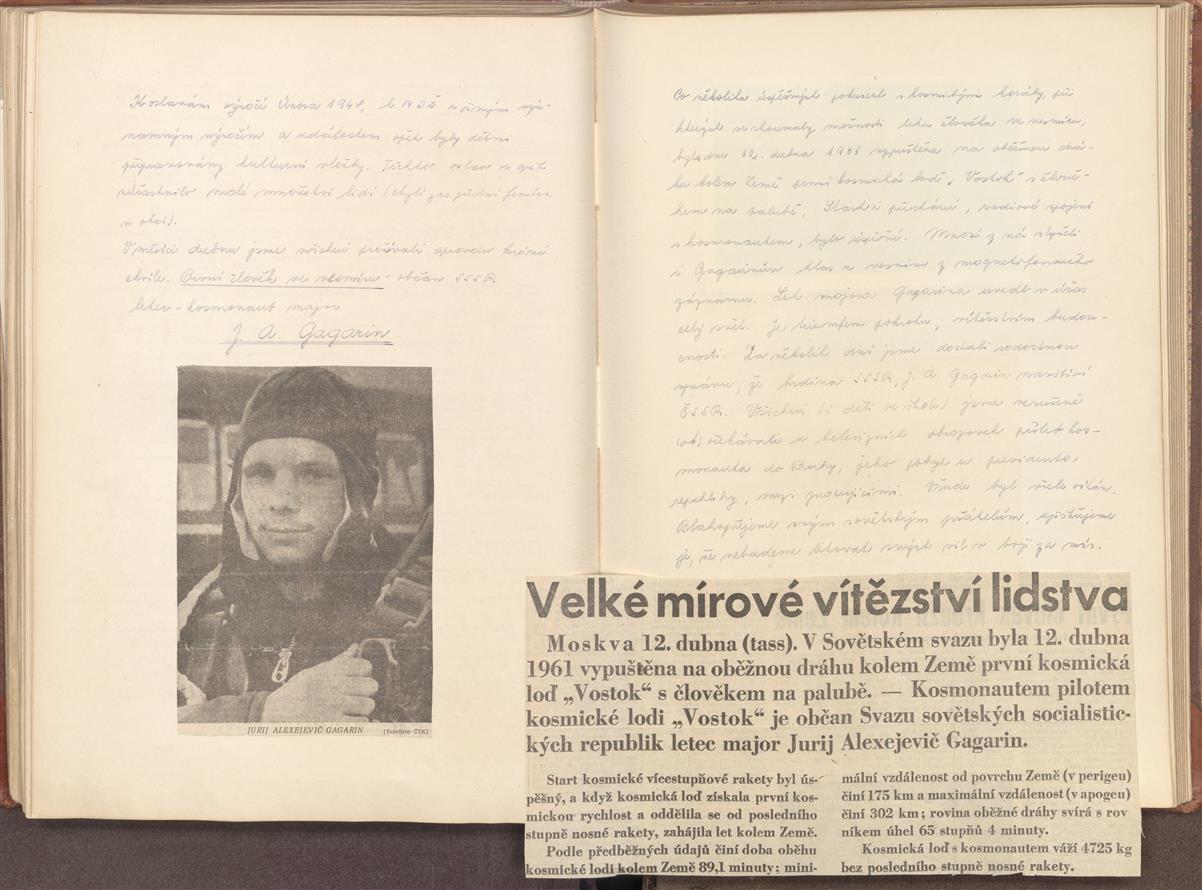 K oslavám výročí Února 1948, k MDŽ a jiným vý-
namným výročím a událostem opět byly dětmi
připravovány kulturní vložky. Těchto oslav se opět
zúčastnilo malé množství lidí (chybí
v obci).
V měsíci dubnu jsme všichni prožívali opravdu krásné
chvíle. První člověk ve vesmíru - občan SSSR
letec - kosmonaut major
J. A. Gagarin
JURIJ ALEXEJEVIČ GAGARIN (Telefoto ČTK)
Po několika úspěšných pokusech s kosmickými koráby, při
kterých se zkoumaly možnosti letu člověka ve vesmíru,
byla dne 12. dubna 1961 vypuštěna na oběžnou drá-
hu kolem Země první kosmická loď „Vostok" s člově-
kem na palubě. Start i přistání, radiové spojení
s kosmonautem, bylo úspěšné. Mnozí z nás slyšeli
i Gagarinův hlas z vesmíru z magnetofonového
záznamu. Let majora Gagarina uvedl v úžas
celý svět. Je triumfem pokroku, vítězstvím budou-
cnosti. Za několik dní jsme dostali radostnou
zprávu, že hrdina SSSR, J. A. Gagarin navštíví
ČSSR. Všichni (i děti ve škole) jsme
očekávali u televizních obrazovek přílet kos-
monauta do Prahy, jeho pobyt u presidenta
republiky, mezi pracujícími. Všude byl vřele vítán.
Blahopřejeme svým sovětským přátelům, ujišťujeme
je, že nebudeme litovat svých sil v boji za mír.
Velké mírové vítězství lidstva
Moskva 12. dubna (tass). V Sovětském svazu byla 12. dubna
1961 vypuštěna na oběžnou dráhu kolem Země první kosmická
loď „Vostok“ s člověkem na palubě. — Kosmonautem pilotem
kosmické lodi „Vostok“ je občan Svazu sovětských socialistic-
kých republik letec major Jurij Alexejevič Gagarin.
Start kosmické vícestupňové rakety byl ús-
pěšný, a když kosmická loď získala první kos-
mickou rychlost a oddělila se od posledního
stupně nosné rakety, zahájila let kolem Země.
Podle předběžných údajů činí doba oběhu
kosmické lodi kolem Země 89,1 minuty; mini-
mální vzdálenost od povrchu Země (v perigeu)
činí 175 km a maximální vzdálenost (v apogeu)
činí 302 km; rovina oběžné dráhy svírá s rov
níkem úhel 65 stupňů 4 minuty.
Kosmická loď s kosmonautem váží 4725 kg
bez posledního stupně nosné rakety.